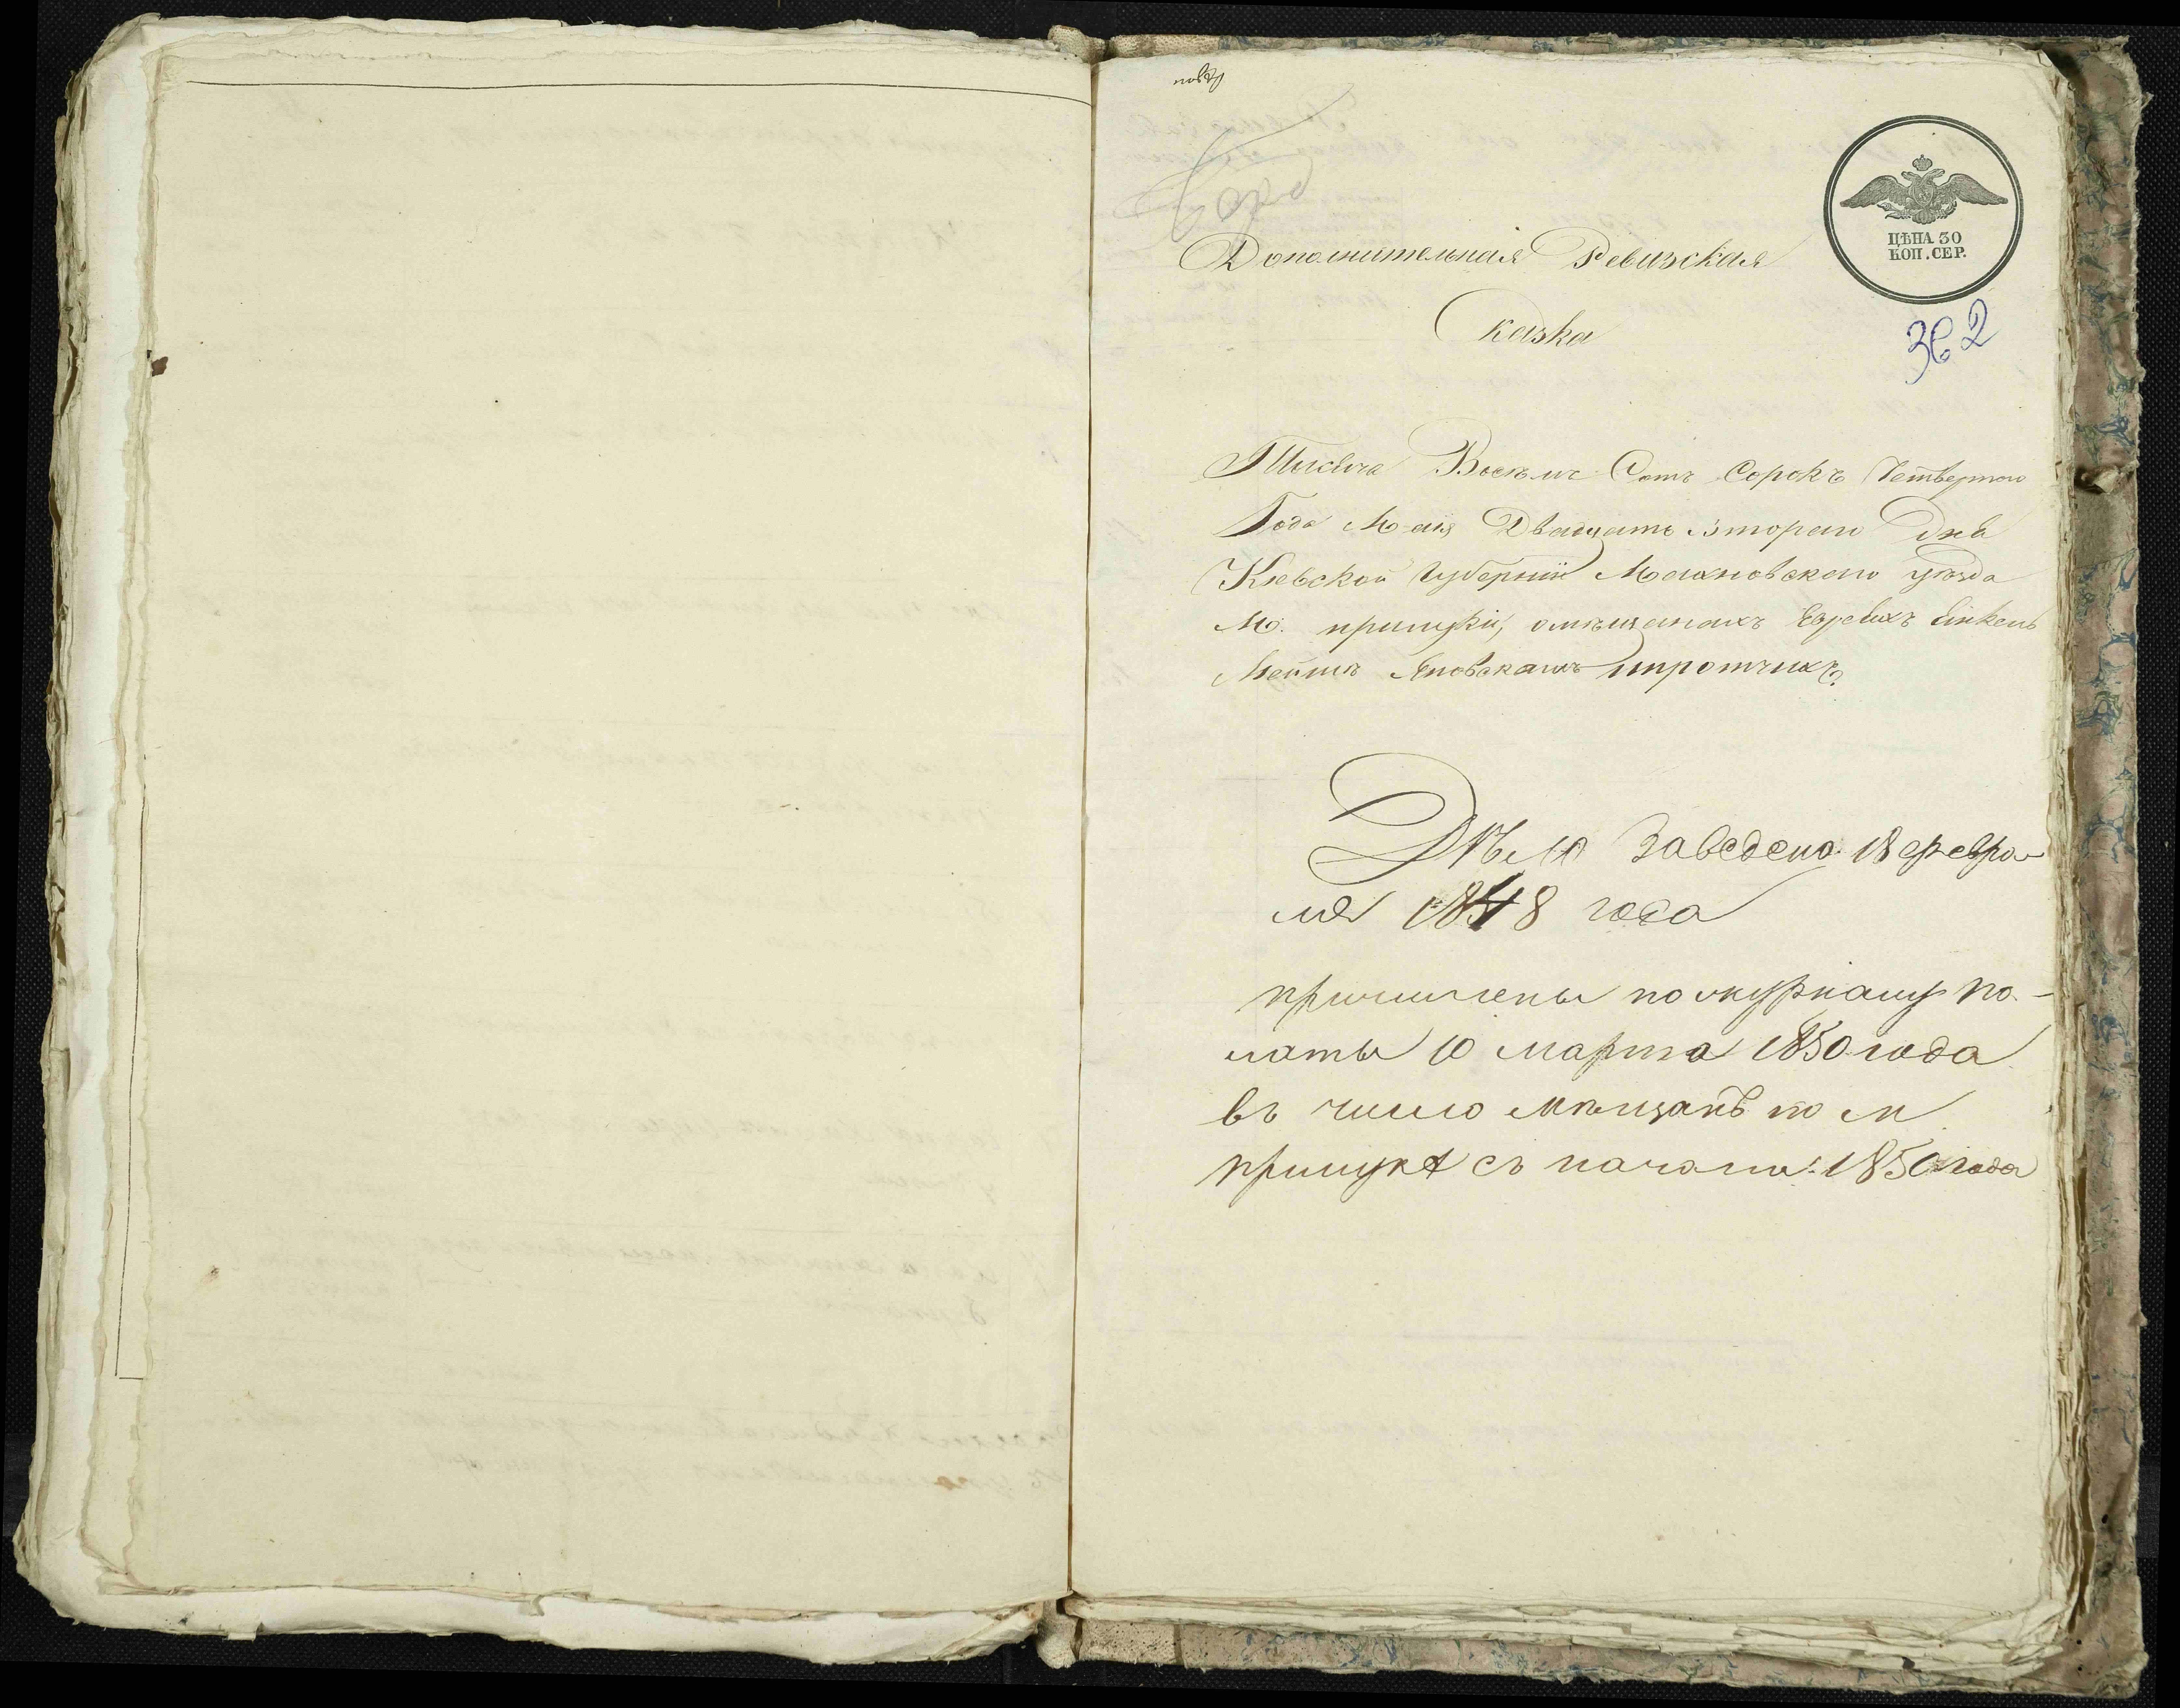 ЦѢНА 30
КОП. СЕР.
362
Дополнительная Ревизская
Сказка
Тысяча Восемь Сотъ Сорокъ Четвертого
Года Маія Двадцать Втораго Дня
Кіевской Губерніи Махновскаго уѣзда
М. прилуки, омѣщанахъ Евреяхъ
Яновскамъ ипротчихъ
Дѣло Заведено 18 февра-
ля 1848 года
причислены по журналу па-
латы 10 марта 1850 года
въ число мѣщанъ по м
прилукѣ съ начала 1850 года